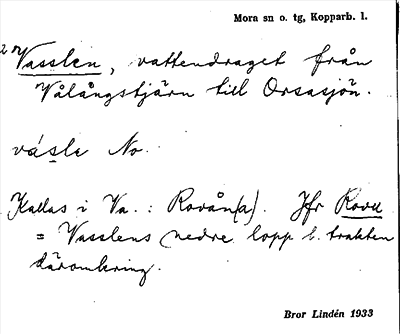 Mora sn o. tg, Kopparb. l.
2 Vasslen, vattendraget från
Vålångstjärn till Orsasjön.
vásle No.
Kallas i Va. : Rovån(a). Jfr Rovu
= Vasslens nedre lopp l. trakten
däromkring.
Bror Lindén 1933